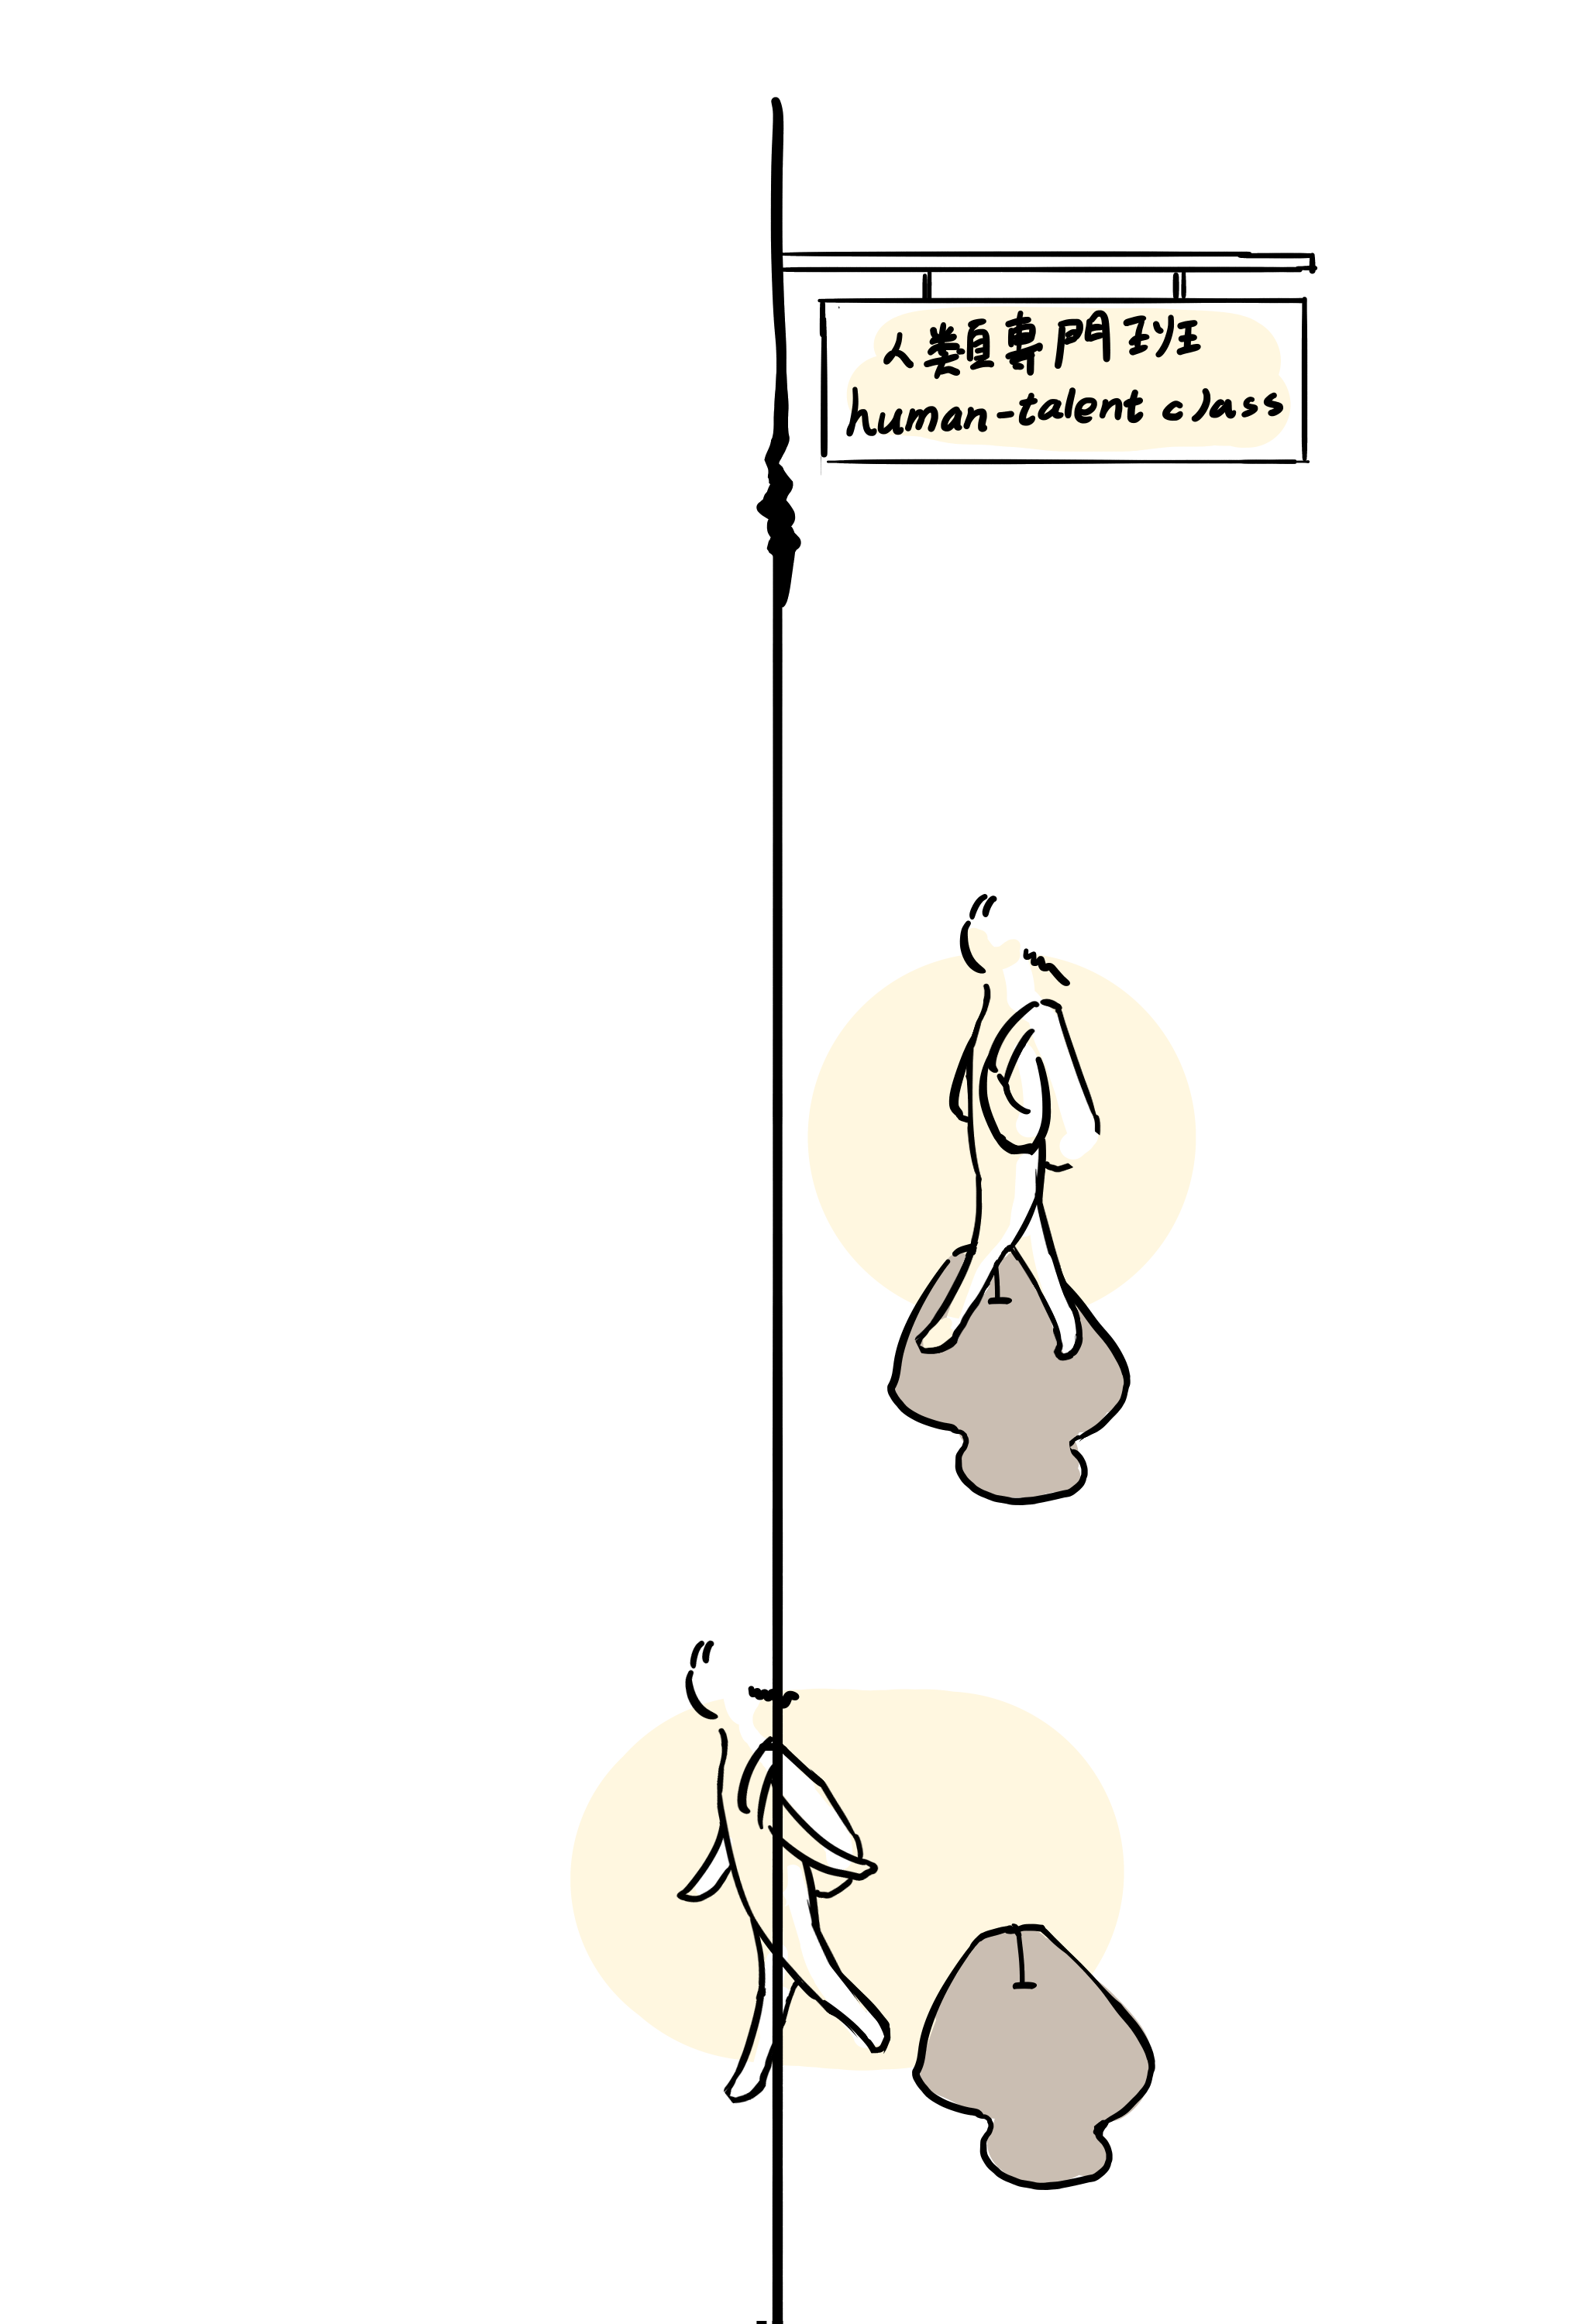 人類專門班
human-talent class